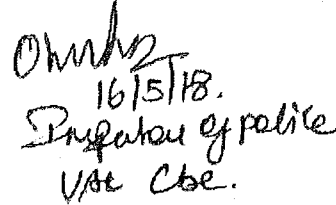 16/5/18.
Inspector of police
VAC Cbe.